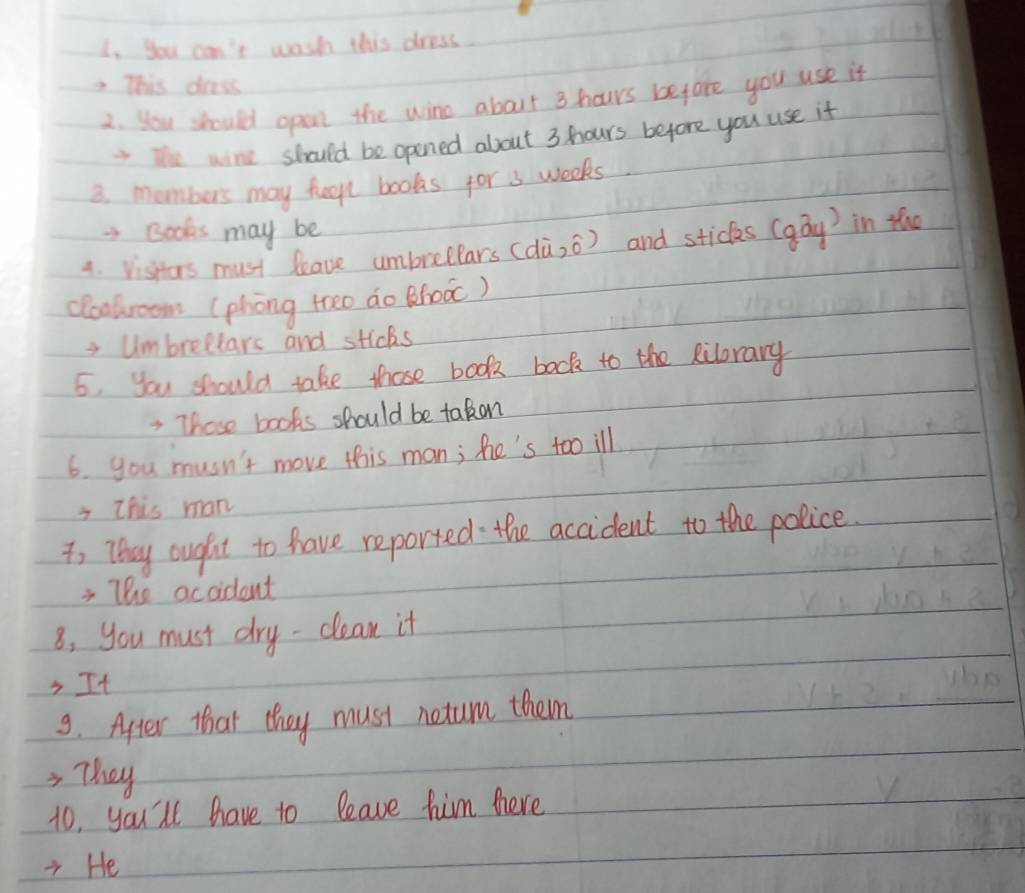 1, You can't wash this dress.
→ This dress
2. You should open the wine about 3 hours before you use it
→ The wine should be opened about 3 hours before you use it
3. Members may keep books for 3 weeks.
→ Books may be
4. Visitors must leave umbrellars (dù, ô) and sticks (gậy) in the
cloakroom (phòng treo áo khoác)
→ Umbrellars and sticks
5. You should take those book back to the library
→ Those books should be taken
6. you musn't move this man; he's too ill
→ This man
7, They ought to have reported the accident to the police.
→ The accident
8, You must dry-clean it
→ It
9. After that they must return them
→ They
10, you'll have to leave him here
→ He